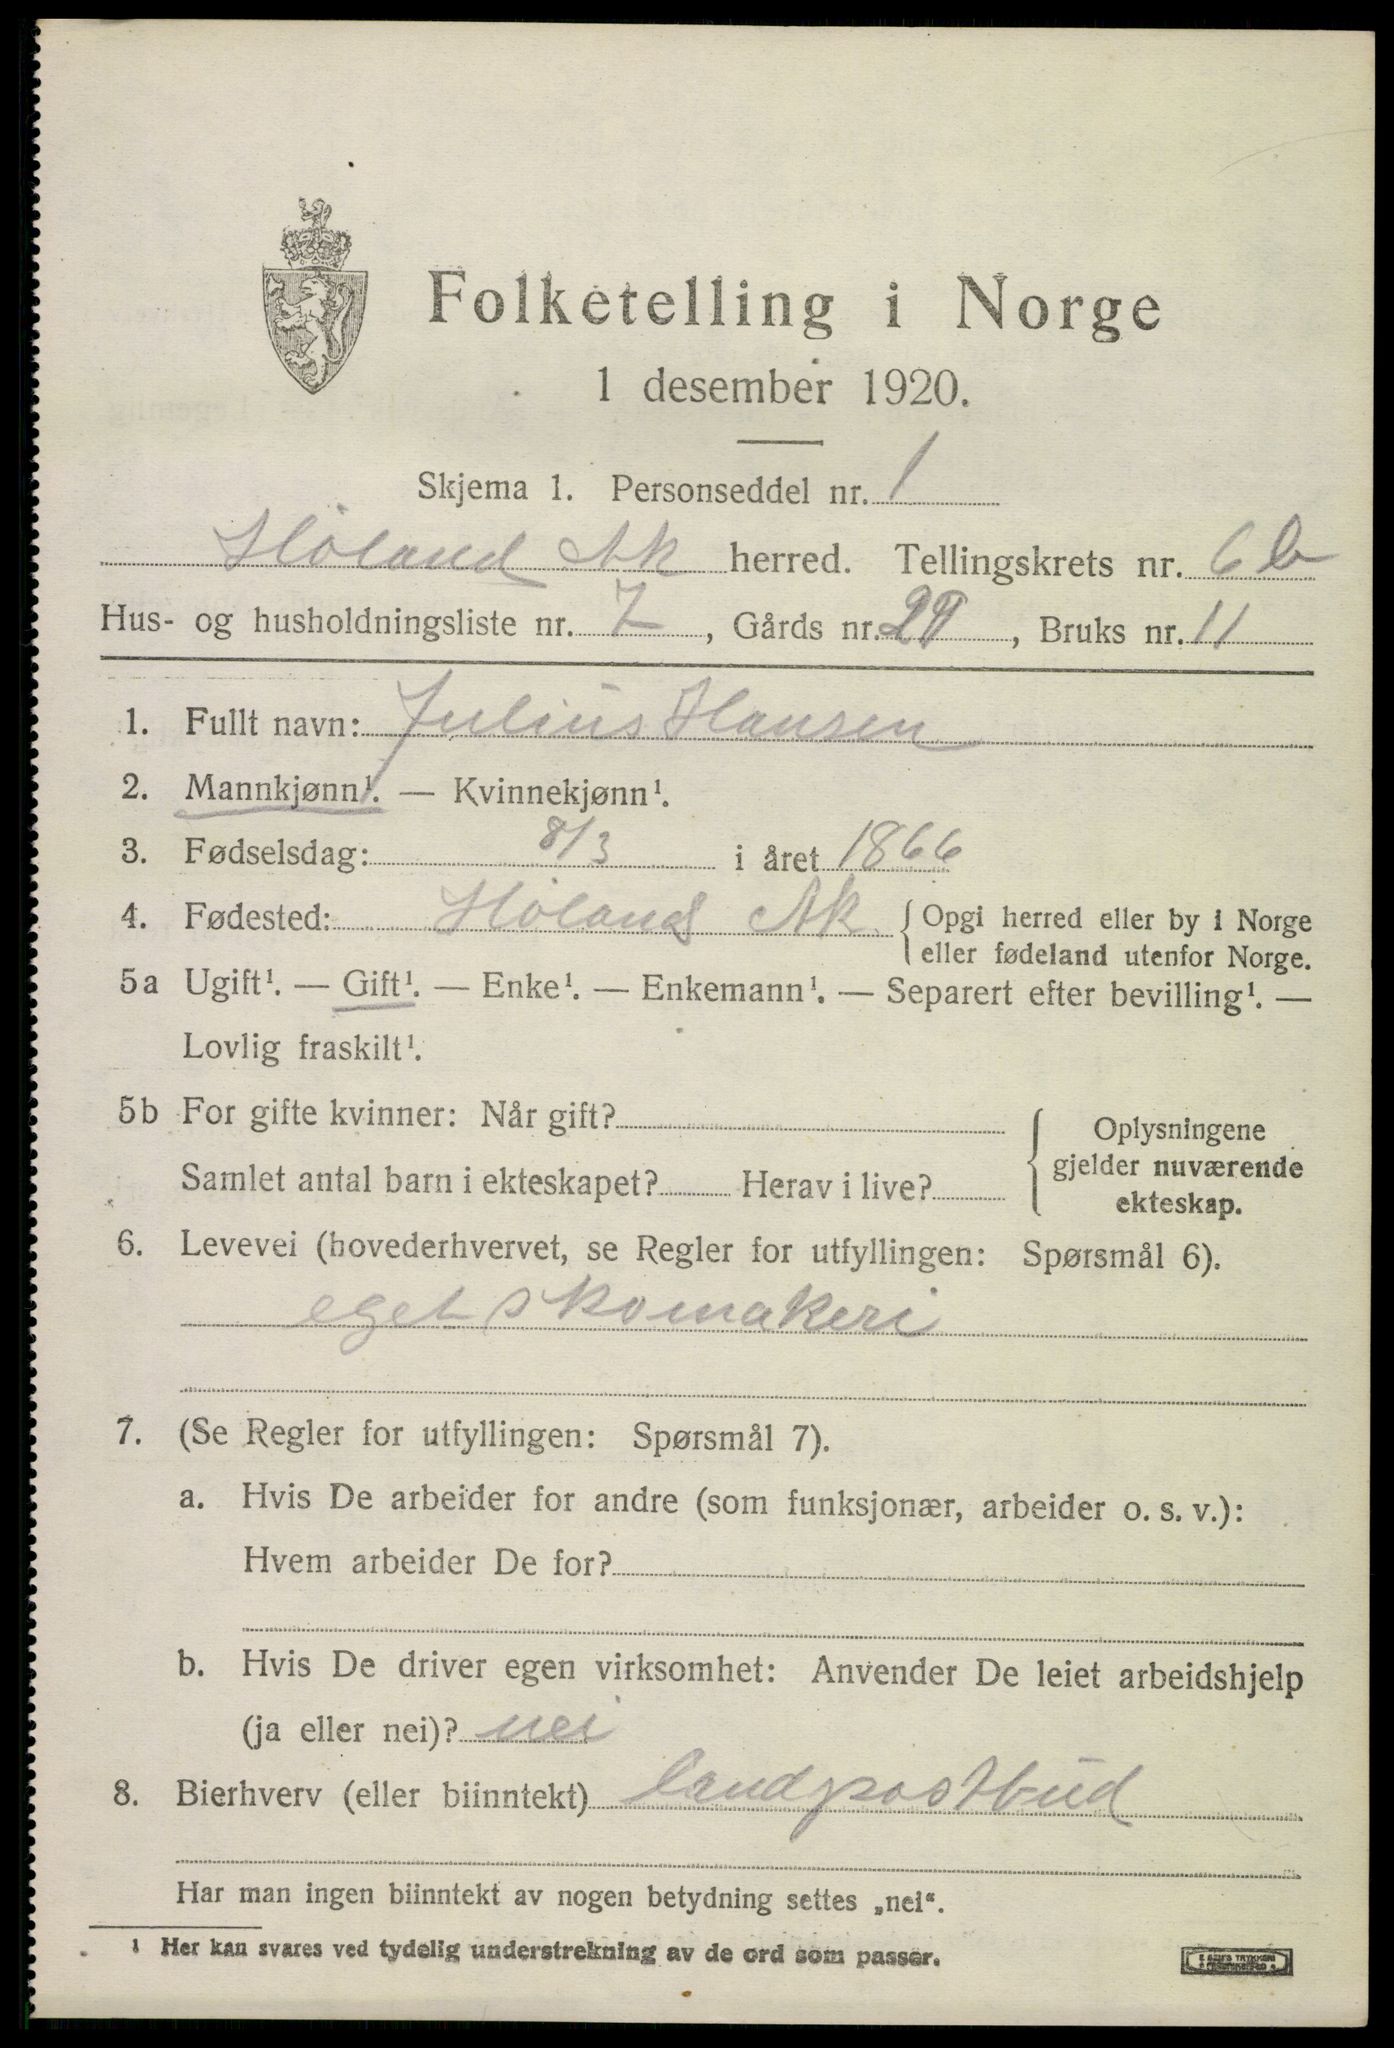 Folketelling i Norge
1 desember 1920.
Skjema 1. Personseddel nr. 1
Høland Ak herred. Tellingskrets nr. 6b
Hus- og husholdningsliste nr. 7, Gårds nr. 29, Bruks nr. 11
1. Fullt navn: Julius Hansen
2. Mannkjønn¹. — Kvinnekjønn¹.
3. Fødselsdag: 8/3 i året 1866
4. Fødested: Høland Ak. { Opgi herred eller by i Norge
eller fødeland utenfor Norge.
5a Ugift¹. — Gift¹. — Enke¹. — Enkemann¹. — Separert efter bevilling¹. —
Lovlig fraskilt¹.
5b For gifte kvinner: Når gift?
Samlet antal barn i ekteskapet? Herav i live?
Oplysningene
gjelder nuværende
ekteskap.
6. Levevei (hovederhvervet, se Regler for utfyllingen: Spørsmål 6).
eget skomakeri
7. (Se Regler for utfyllingen: Spørsmål 7).
a. Hvis De arbeider for andre (som funksjonær, arbeider o. s. v.):
Hvem arbeider De for?
b. Hvis De driver egen virksomhet: Anvender De leiet arbeidshjelp
(ja eller nei)? nei
8. Bierhverv (eller biinntekt) landpostbud
Har man ingen biinntekt av nogen betydning settes „nei“.
¹ Her kan svares ved tydelig understrekning av de ord som passer.